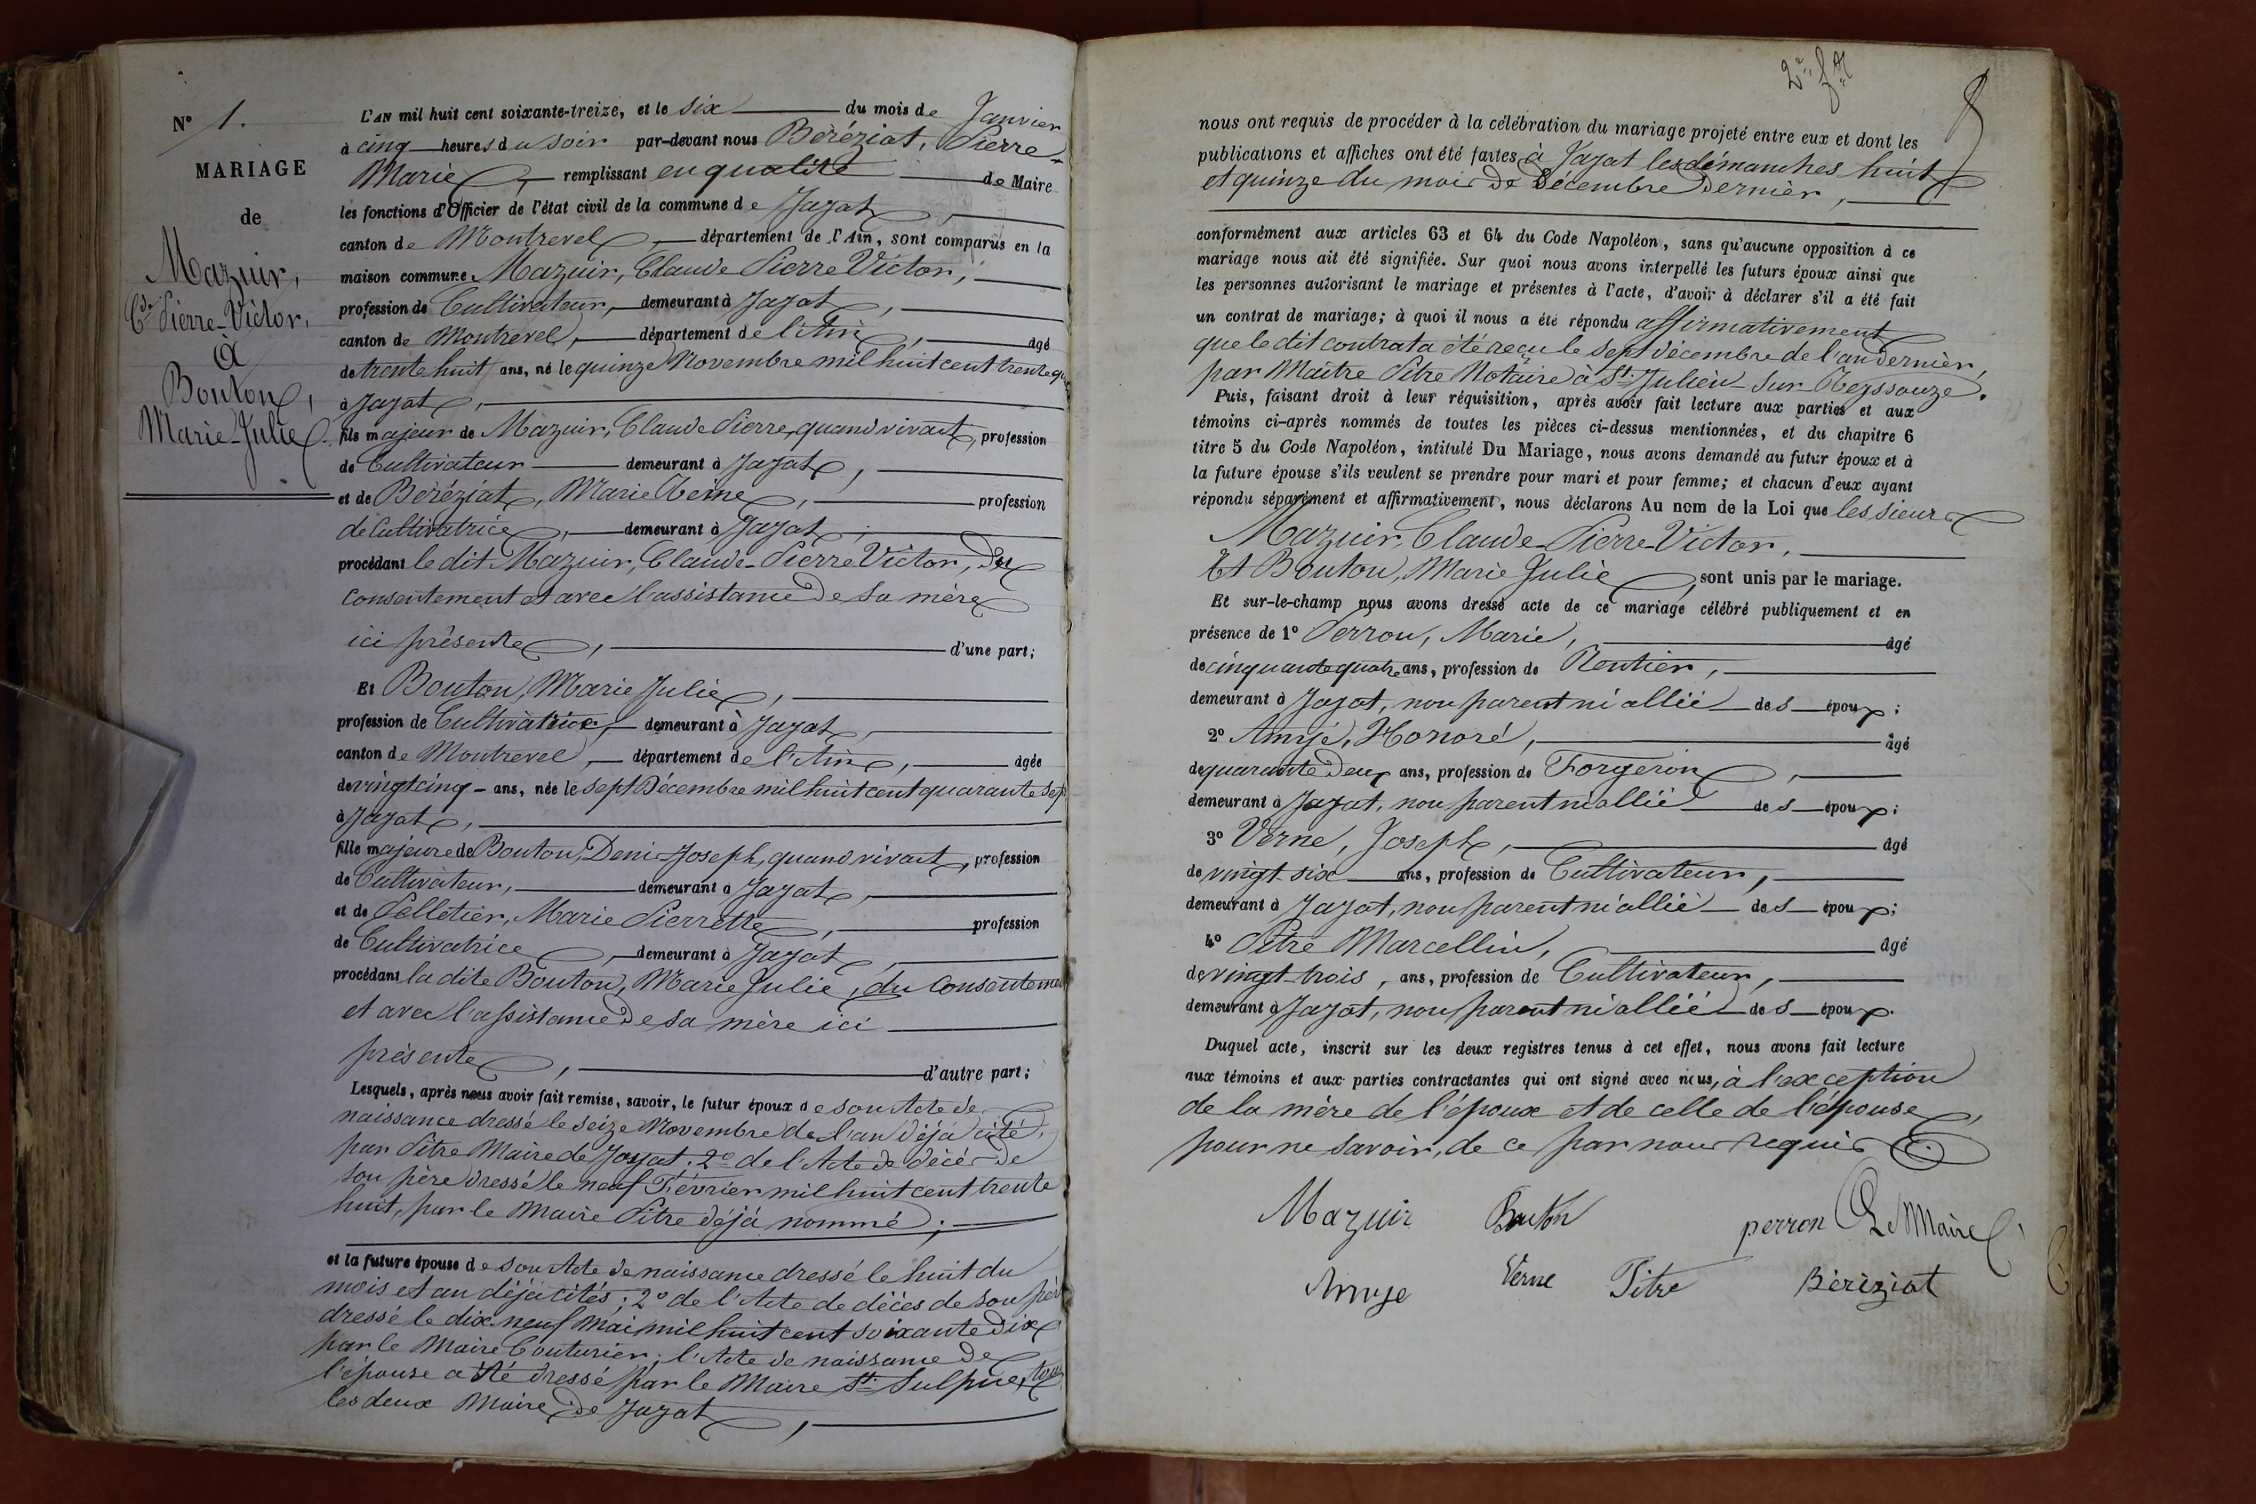 N° 1.
MARIAGE
de
Mazuir,
Cde Pierre-Victor,
à
Bouton,
Marie-Julie
L'AN mil huit cent soixante-treize, et le six du mois de Janvier
à cinq heures du soir par-devant nous Béréziat, Pierre-
Marie, remplissant en qualité de Maire
les fonctions d'Officier de l'état civil de la commune de Jayat,
canton de Montrevel, département de l'Ain, sont comparus en la
maison commune Mazuir, Claude Pierre Victor,
profession de Cultivateur, demeurant à Jayat,
canton de Montrevel, département de l'Ain, âgé
de trente huit ans, né le quinze Novembre mil huit cent trente qu
à Jayat,
fils majeur de Mazuir, Claude Pierre, quand vivait, profession
de Cultivateur demeurant à Jayat,
et de Béréziat, Marie Reine, profession
de Cultivatrice, demeurant à Jayat,
procédant le dit Mazuir, Claude-Pierre Victor, du
consentement et avec l'assistance de sa mère
ici présente, d'une part;
Et Bouton, Marie Julie,
profession de Cultivatrice, demeurant à Jayat,
canton de Montrevel, département de l'Ain, âgée
de vingt cinq ans, née le sept Décembre mil huit cent quarante sept
à Jayat,
fille majeure de Bouton, Denis-Joseph, quand vivait, profession
de Cultivateur, demeurant à Jayat,
et de Pelletier, Marie Pierrette, profession
de Cultivatrice, demeurant à Jayat,
procédant la dite Bouton, Marie Julie, du Consenteme
et avec l'assistance de sa mère ici
présente, d'autre part;
Lesquels, après nous avoir fait remise, savoir, le futur époux de son Acte de
naissance dressé le seize Novembre de l'an déjà cité,
par Pitre Maire de Jayat. 2° de l'Acte de décès de
son père dressé le neuf Février mil huit cent trente
huit, par le Maire Pitre déjà nommé;
et la future épouse de son Acte de naissance dressé le huit du
mois et an déjà cités; 2° de l'Acte de décès de son père
dressé le dix-neuf Mai mil huit cent soixante dix
par le Maire Couturier; l'Acte de naissance de
l'épouse a été dressé par le Maire St. Sulpice, tous
les deux Maire de Jayat,
2e ft
nous ont requis de procéder à la célébration du mariage projeté entre eux et dont les
publications et affiches ont été faites à Jayat les démanches huit
et quinze du mois de Décembre dernier,
conformément aux articles 63 et 64 du Code Napoléon, sans qu'aucune opposition à ce
mariage nous ait été signifiée. Sur quoi nous avons interpellé les futurs époux ainsi que
les personnes autorisant le mariage et présentes à l'acte, d'avoir à déclarer s'il a été fait
un contrat de mariage; à quoi il nous a été répondu affirmativement
que le dit contrat a été reçu le sept décembre de l'an dernier,
par Maître Pitre Notaire à St. Julien-sur-Reyssouze.
Puis, faisant droit à leur réquisition, après avoir fait lecture aux parties et aux
témoins ci-après nommés de toutes les pièces ci-dessus mentionnées, et du chapitre 6
titre 5 du Code Napoléon, intitulé Du Mariage, nous avons demandé au futur époux et à
la future épouse s'ils veulent se prendre pour mari et pour femme; et chacun d'eux ayant
répondu séparément et affirmativement, nous déclarons Au nom de la Loi que les sieurs
Mazuir, Claude-Pierre-Victor,
Et Bouton, Marie Julie, sont unis par le mariage.
Et sur-le-champ nous avons dressé acte de ce mariage célébré publiquement et en
présence de 1° Perron, Marie, âgé
de cinquante quatre ans, profession de Rentier,
demeurant à Jayat, non parent ni allié des époux;
2° Amyé, Honoré, âgé
de quarante deux ans, profession de Forgeron,
demeurant à Jayat, non parent ni allié des époux;
3° Verne, Joseph, âgé
de vingt-six ans, profession de Cultivateur,
demeurant à Jayat, non parent ni allié des époux;
4° Pitre Marcellin, âgé
de vingt-trois, ans, profession de Cultivateur,
demeurant à Jayat, non parent ni allié des époux.
Duquel acte, inscrit sur les deux registres tenus à cet effet, nous avons fait lecture
aux témoins et aux parties contractantes qui ont signé avec nous, à l'exception
de la mère de l'époux et de celle de l'épouse,
pour ne savoir, de ce par nous requis
Mazuir Bouton perron Le Maire
Amye Verne Pitre Béréziat